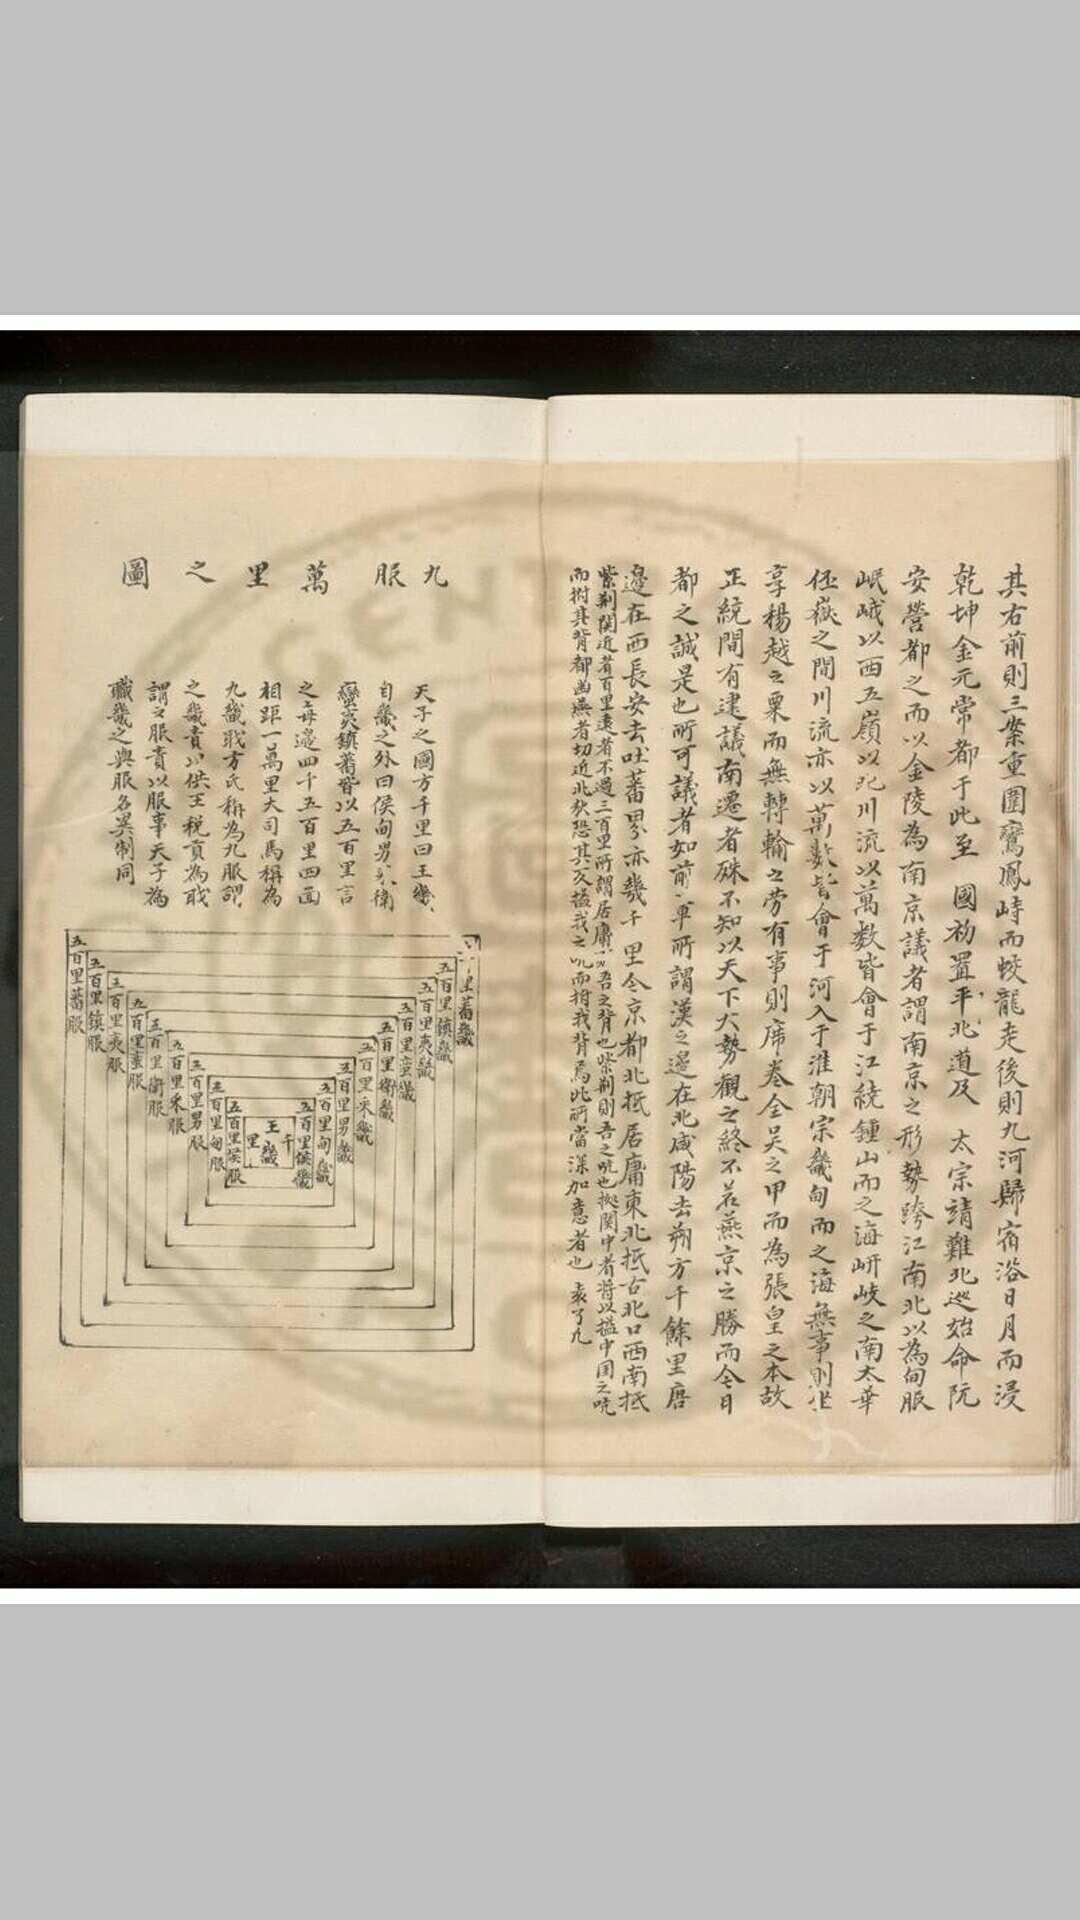 其右前則三案重圍鸞鳳峙而蛟龍走後則九河歸宿浴日月而浸
乾坤金元常都于此至 國初置平北道及 太宗靖難北巡始命阮
安營都之而以金陵為南京議者謂南京之形勢跨江南北以為甸服
岷峨以西五嶺以北川流以萬数皆會于江繞鍾山而之海岍岐之南太華
伾嶽之間川流亦以萬數皆會于河入于淮朝宗畿甸而之海無事則坐
享楊越之粟而無轉輸之劳有事則席卷全吴之甲而為張皇之本故
正統間有建議南遷者殊不知以天下大勢觀之終不若燕京之勝而今日
都之誠是也所可議者如前軍所謂漢之邊在北咸陽去朔方千餘里唐
邊在西長安去吐蕃界亦幾千里今京都北抵居庸東北抵古北口西南抵
紫荆関近者百里遠者不過三百里所謂居庸則吾之背也紫荆則吾之吭也據関中者将以搤中国之吭
而拊其背都幽燕者切近北狄恐其反搤我之吭而拊我背焉此所當深加意者也 袁了凡
九服萬里之圖
天子之國方千里曰王畿
自畿之外曰侯甸男采衛
蠻夷鎮蕃皆以五百里言
之每邉四千五百里四面
相距一萬里大司馬稱為
九畿職方氏稱為九服謂
之畿責以供王税貢為職
謂之服責以服事天子為
職畿之與服名異制同
五百里蕃畿
五百里鎮畿
五百里夷畿
五百里蛮畿
五百里衛畿
五百里采畿
五百里男畿
五百里甸畿
五百里侯畿
千
王畿
里
五百里侯服
五百里甸服
五百里男服
五百里采服
五百里衛服
五百里蛮服
五百里夷服
五百里鎮服
五百里蕃服